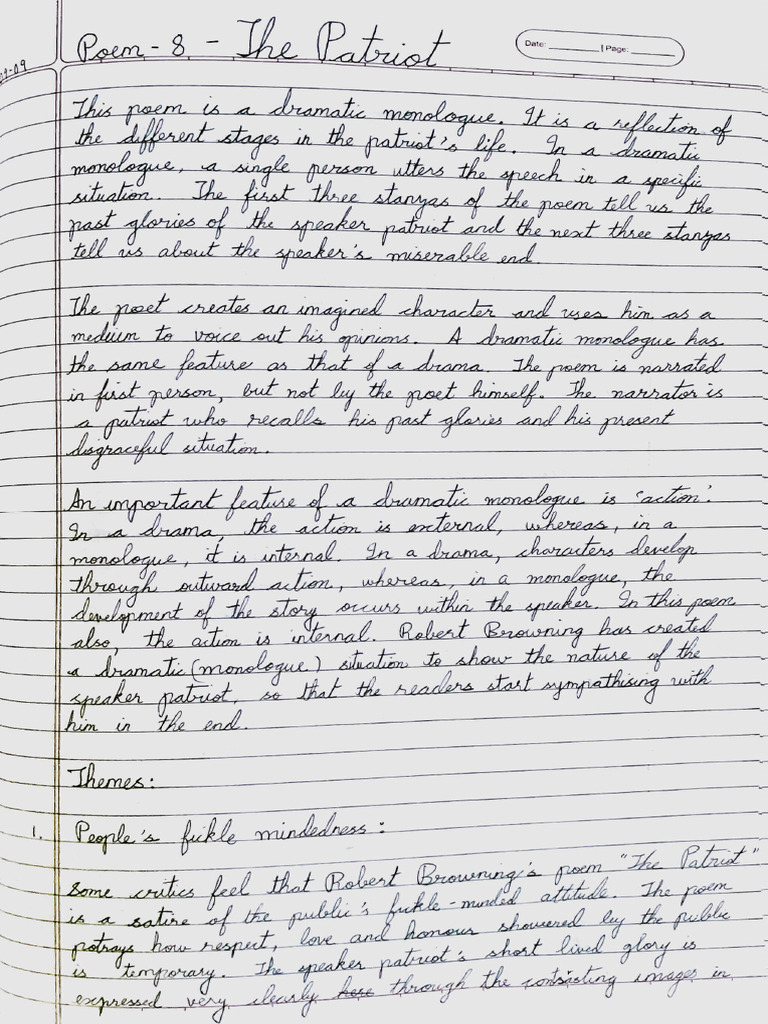 Poem - 8 - The Patriot
Date: ________ | Page: ________
This poem is a dramatic monologue. It is a reflection of
the different stages in the patriot's life. In a dramatic
monologue, a single person utters the speech in a specific
situation. The first three stanzas of the poem tell us the
past glories of the speaker patriot and the next three stanzas
tell us about the speaker's miserable end.
The poet creates an imagined character and uses him as a
medium to voice out his opinions. A dramatic monologue has
the same feature as that of a drama. The poem is narrated
in first person, but not by the poet himself. The narrator is
a patriot who recalls his past glories and his present
disgraceful situation.
An important feature of a dramatic monologue is 'action'.
In a drama, the action is external, whereas, in a
monologue, it is internal. In a drama, characters develop
through outward action, whereas, in a monologue, the
development of the story occurs within the speaker. In this poem
also, the action is internal. Robert Browning has created
a dramatic (monologue) situation to show the nature of the
speaker patriot, so that the readers start sympathising with
him in the end.
Themes:
1. People's fickle mindedness:
Some critics feel that Robert Browning's poem "The Patriot"
is a satire of the public's fickle-minded attitude. The poem
potrays how respect, love and honour showered by the public
is temporary. The speaker patriot's short lived glory is
expressed very clearly here through the contrasting images in